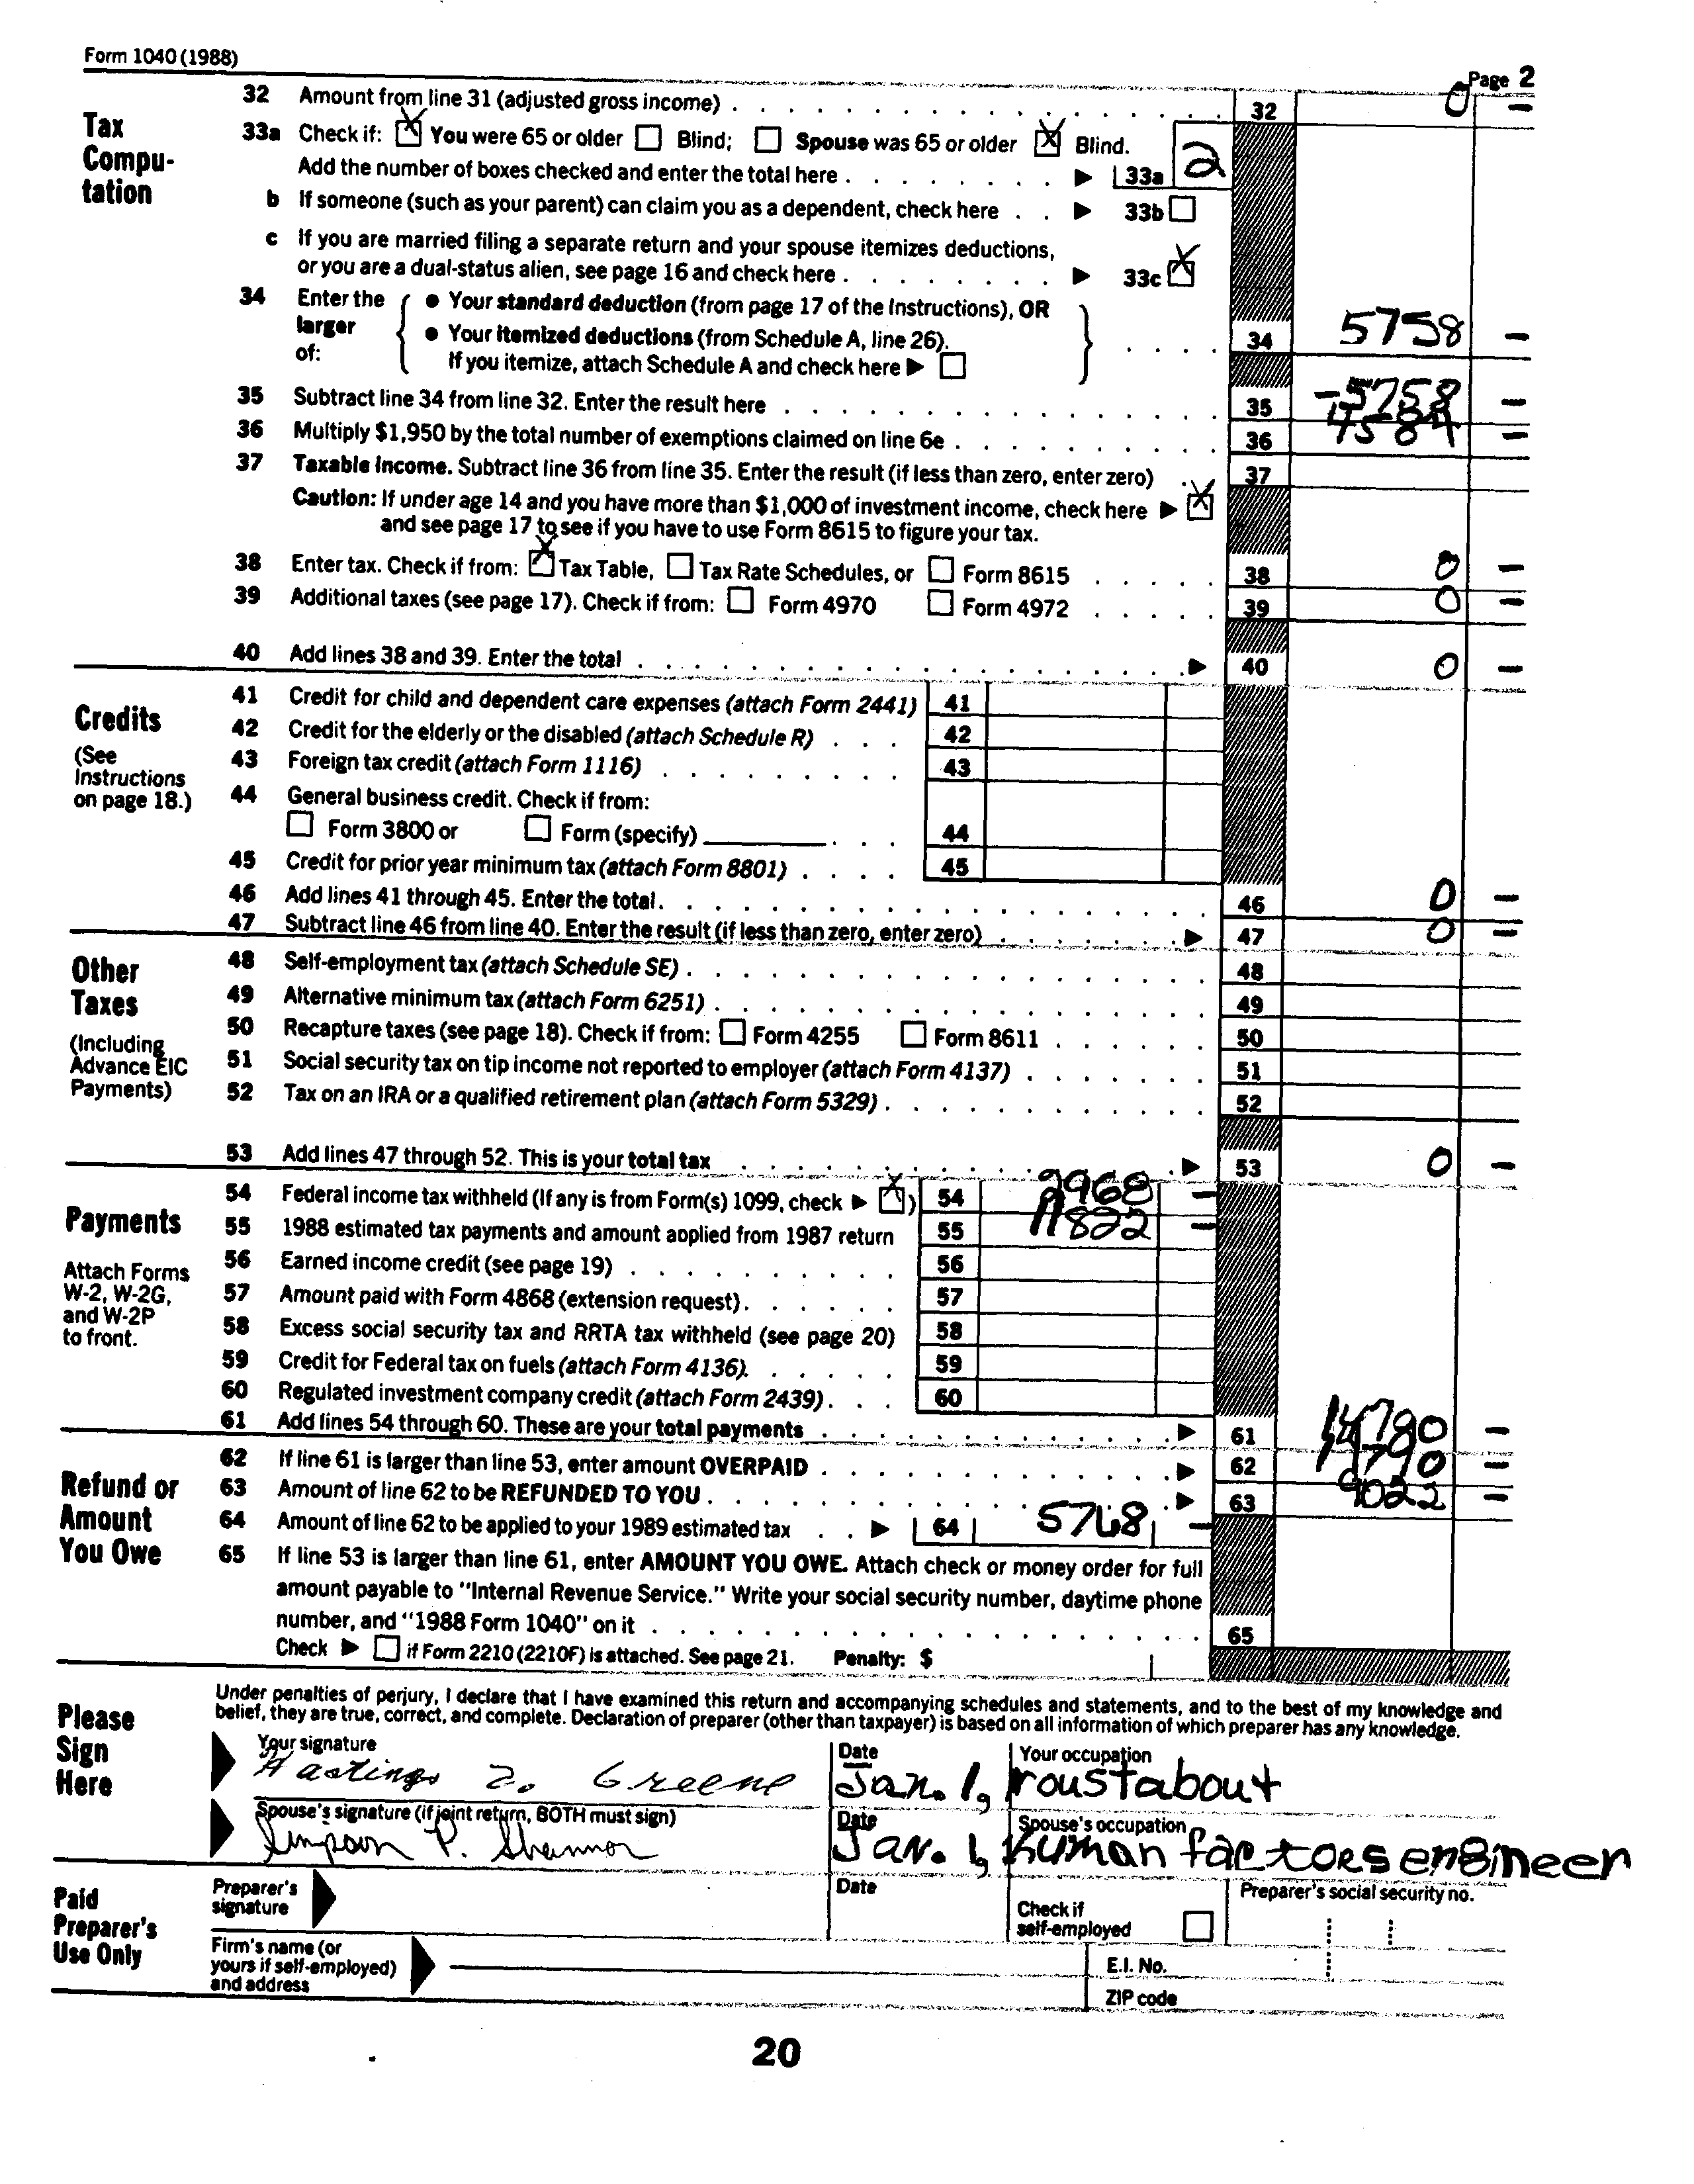 Form 1040 (1988)
Page 2
Tax Compu-tation
32 Amount from line 31 (adjusted gross income) 32 0 –
33a Check if: X You were 65 or older Blind; Spouse was 65 or older X Blind.
Add the number of boxes checked and enter the total here 33a 2
b If someone (such as your parent) can claim you as a dependent, check here 33b
c If you are married filing a separate return and your spouse itemizes deductions,
or you are a dual-status alien, see page 16 and check here 33c X
34 Enter the larger of:
● Your standard deduction (from page 17 of the Instructions), OR
● Your itemized deductions (from Schedule A, line 26).
If you itemize, attach Schedule A and check here ▶
34 5758 –
35 Subtract line 34 from line 32. Enter the result here 35 -5758 –
36 Multiply $1,950 by the total number of exemptions claimed on line 6e 36 –
37 Taxable income. Subtract line 36 from line 35. Enter the result (if less than zero, enter zero) 37
Caution: If under age 14 and you have more than $1,000 of investment income, check here ▶ X
and see page 17 to see if you have to use Form 8615 to figure your tax.
38 Enter tax. Check if from: X Tax Table, Tax Rate Schedules, or Form 8615 38 0 –
39 Additional taxes (see page 17). Check if from: Form 4970 Form 4972 39 0 –
40 Add lines 38 and 39. Enter the total ▶ 40 0 –
Credits
(See Instructions on page 18.)
41 Credit for child and dependent care expenses (attach Form 2441) 41
42 Credit for the elderly or the disabled (attach Schedule R) 42
43 Foreign tax credit (attach Form 1116) 43
44 General business credit. Check if from:
Form 3800 or Form (specify) 44
45 Credit for prior year minimum tax (attach Form 8801) 45
46 Add lines 41 through 45. Enter the total 46 0 –
47 Subtract line 46 from line 40. Enter the result (if less than zero, enter zero) ▶ 47 0 –
Other Taxes
(Including Advance EIC Payments)
48 Self-employment tax (attach Schedule SE) 48
49 Alternative minimum tax (attach Form 6251) 49
50 Recapture taxes (see page 18). Check if from: Form 4255 Form 8611 50
51 Social security tax on tip income not reported to employer (attach Form 4137) 51
52 Tax on an IRA or a qualified retirement plan (attach Form 5329) 52
53 Add lines 47 through 52. This is your total tax ▶ 53 0 –
Payments
Attach Forms W-2, W-2G, and W-2P to front.
54 Federal income tax withheld (If any is from Form(s) 1099, check ▶ X) 54 2968 –
55 1988 estimated tax payments and amount applied from 1987 return 55 11822 –
56 Earned income credit (see page 19) 56
57 Amount paid with Form 4868 (extension request) 57
58 Excess social security tax and RRTA tax withheld (see page 20) 58
59 Credit for Federal tax on fuels (attach Form 4136) 59
60 Regulated investment company credit (attach Form 2439) 60
61 Add lines 54 through 60. These are your total payments ▶ 61 14790 –
Refund or Amount You Owe
62 If line 61 is larger than line 53, enter amount OVERPAID ▶ 62 14790 –
63 Amount of line 62 to be REFUNDED TO YOU ▶ 63 9022 –
64 Amount of line 62 to be applied to your 1989 estimated tax ▶ 64 5768 –
65 If line 53 is larger than line 61, enter AMOUNT YOU OWE. Attach check or money order for full
amount payable to "Internal Revenue Service." Write your social security number, daytime phone
number, and "1988 Form 1040" on it 65
Check ▶ if Form 2210 (2210F) is attached. See page 21. Penalty: $
Please Sign Here
Under penalties of perjury, I declare that I have examined this return and accompanying schedules and statements, and to the best of my knowledge and
belief, they are true, correct, and complete. Declaration of preparer (other than taxpayer) is based on all information of which preparer has any knowledge.
Your signature Date Your occupation
Hastings Z. Greene Jan. 1, roustabout
Spouse's signature (if joint return, BOTH must sign) Date Spouse's occupation
Simpson P. Shannon Jan. 1, human factors engineer
Paid Preparer's Use Only
Preparer's signature Date Check if self-employed Preparer's social security no.
Firm's name (or yours if self-employed) and address E.I. No.
ZIP code
20